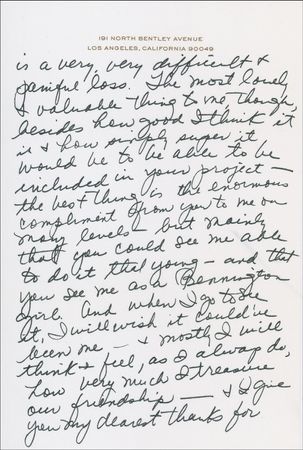 191 NORTH BENTLEY AVENUE
LOS ANGELES, CALIFORNIA 90049
is a very, very difficult &
painful loss. The most lovely
& valuable thing to me though,
besides how good I think it
is & how simply super it
would be to be able to be
included in your project —
the best thing is the enormous
compliment from you to me on
many levels — but mainly
that you could see me able
to do it that young — and that
you see me as a Bennington
Girl. And when I go to see
it, I will wish it could've
been me — & mostly I will
think & feel, as I always do,
how very much I treasure
our friendship — & I give
you my dearest thanks for